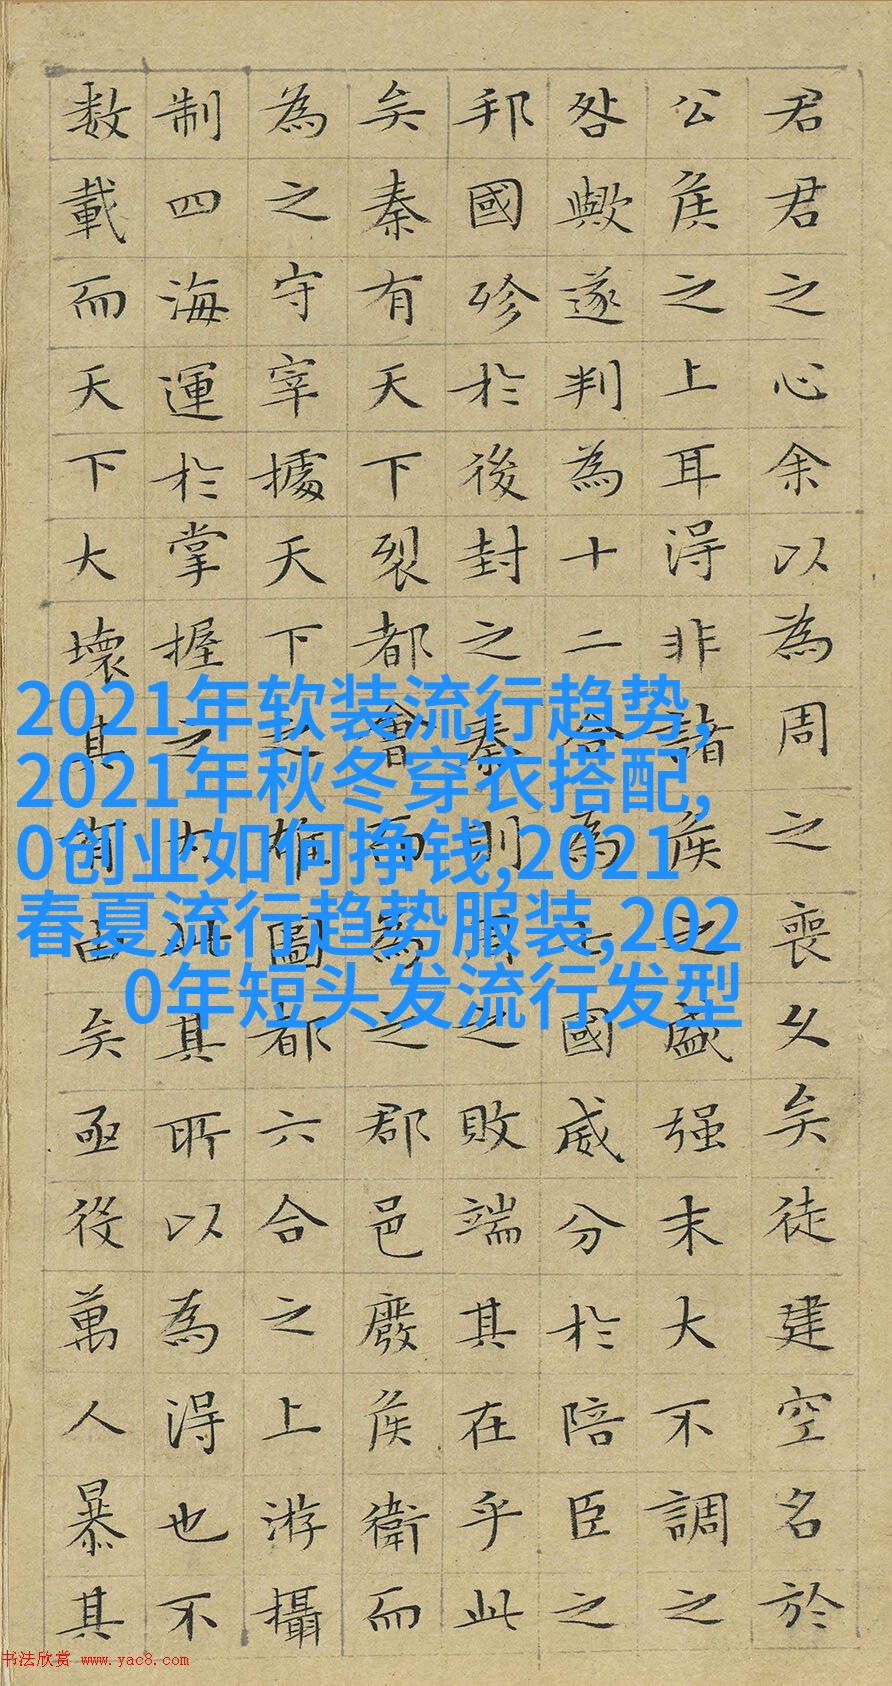 君君之心余以為周之喪久矣徒建空名於
公侯之上耳得非諸侯之盛强末大不調之
咎歟遂判為十二合為七國威分於陪臣之
邦國殄於後封之秦則周之敗端其在乎此
矣秦有天下裂都會而為之郡邑廢侯衛而
為之守宰據天下之雄圖都六合之上游攝
制四海運於掌握之內此其所以為得也不
数載而天下大壞其有由矣亟役萬人暴其
2021年软装流行趋势,
2021年秋冬穿衣搭配,
0创业如何挣钱,2021
春夏流行趋势服装,202
0年短头发流行发型
书法欣赏 www.yac8.com